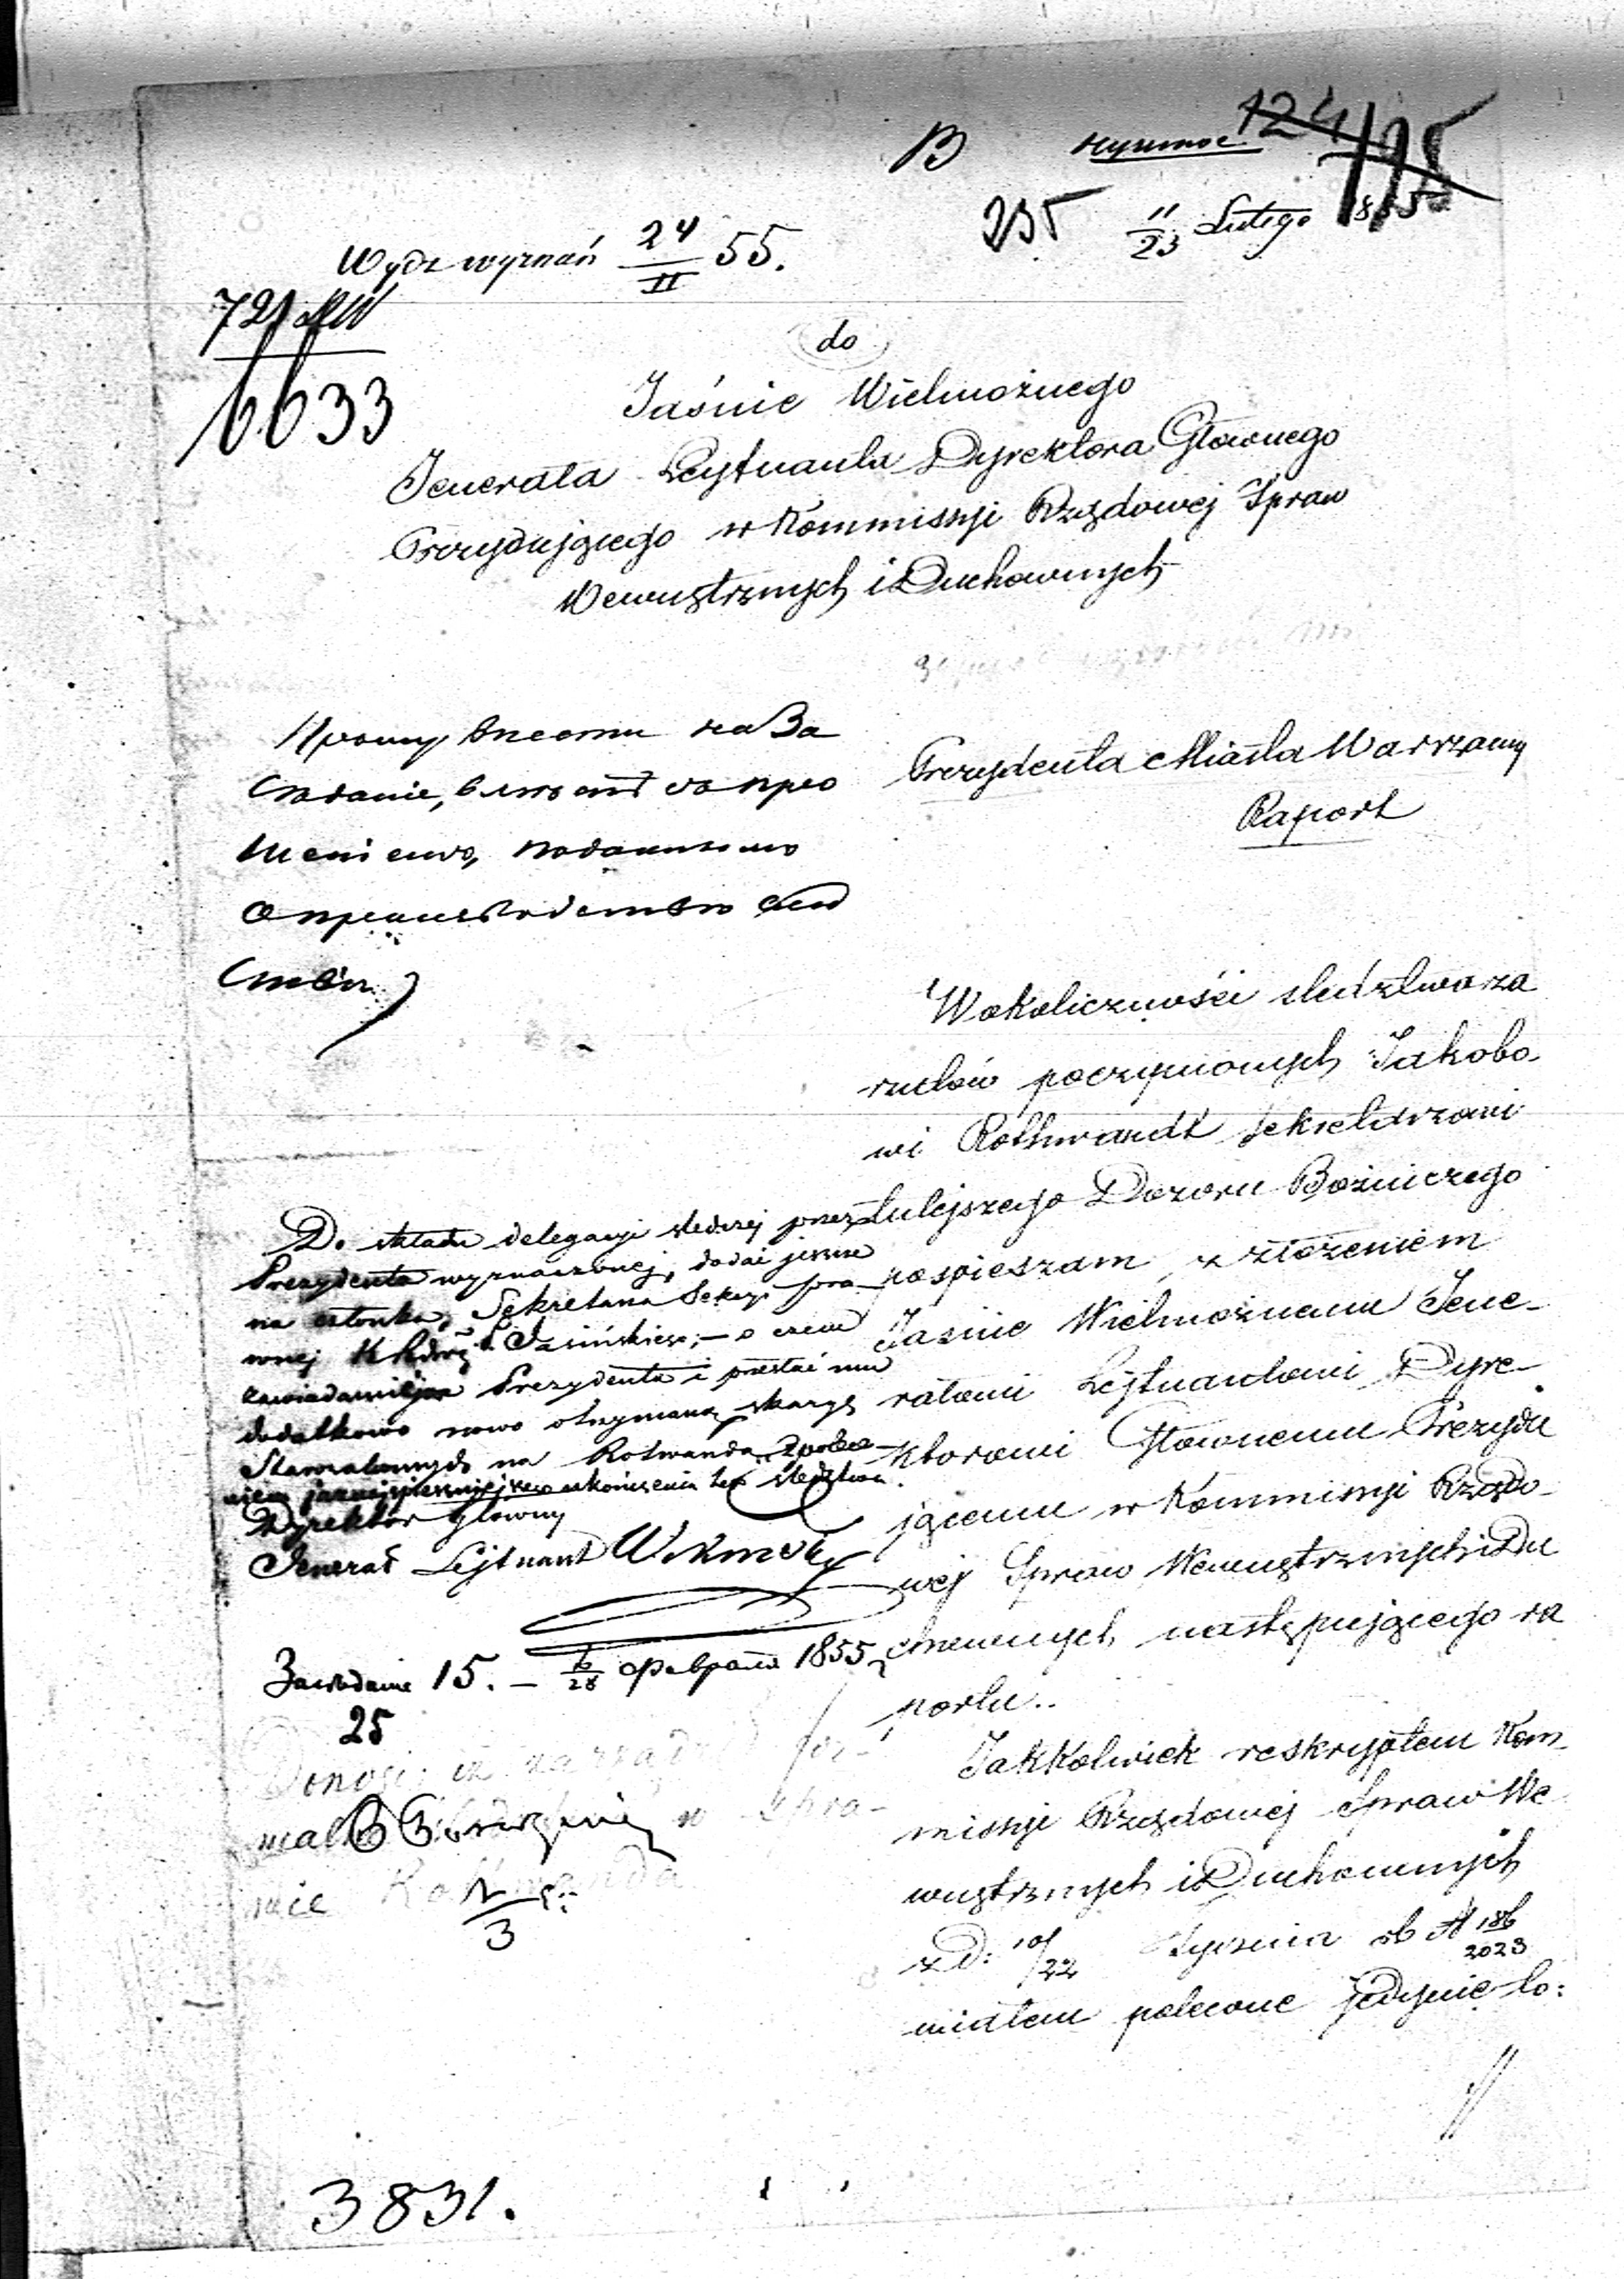 B
124
195
235 11/23 Lutego 1855
Wydz wyznań 24/II 55.
721
6633
do
Jaśnie Wielmożnego
Jenerała Lejtnanta Dyrektora Głównego
Prezydującego w Kommissyi Rządowej Spraw
Wewnętrznych i Duchownych
Prezydenta Miasta Warszawy
Raport
Прошу внести на За
седаніе,
W okoliczności śledztwa za
rzutów poczynionych Jakobo-
wi Rothwandt Sekretarzowi
tutejszego Dozoru Bożniczego
pospieszam z złożeniem
Jaśnie Wielmożnemu Jene-
rałowi Lejtnantowi Dyre-
ktorowi Głównemu Prezydu
jącemu w Kommissyi Rządo-
wej Spraw Wewnętrznych i Du
chownych następującego ra
portu..
Jakkolwiek reskryptem Kom-
missyi Rządowej Spraw We
wnętrznych i Duchownych
z D. 10/22 Stycznia rb N 186/2023
miałem polecone jedynie to:
Do składu delegacyi śledczej przez
Prezydenta wyznaczonej, dodać jeszcze
na członka, Sekretarza Sekcyi pra
wnej Jasińskiego, – o czem
zawiadamiając Prezydenta i przesłać mu
dodatkowo nowo otrzymaną skargę
Starozakonnych na Rotwanda z polece-
niem jaknajspieszniejszego ukończenia tego śledztwa.
Dyrektor Główny
Jenerał Lejtnant
Засѣданіе 15. – 16/28 Февраля 1855
25
Donosi, iż zarządził for-
malne w spra-
wie Rothwanda
3
3831.